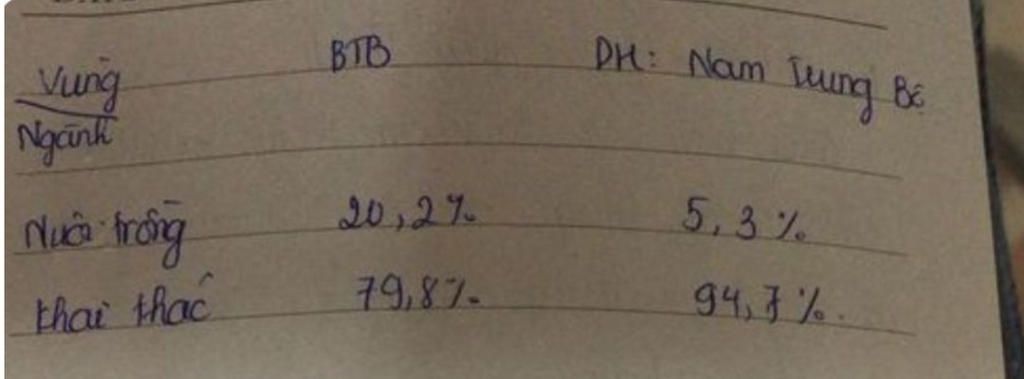 Vùng BTB DH: Nam Trung Bộ
Ngành
Nuôi trồng 20,2% 5,3%
Khai thác 79,8% 94,7%.